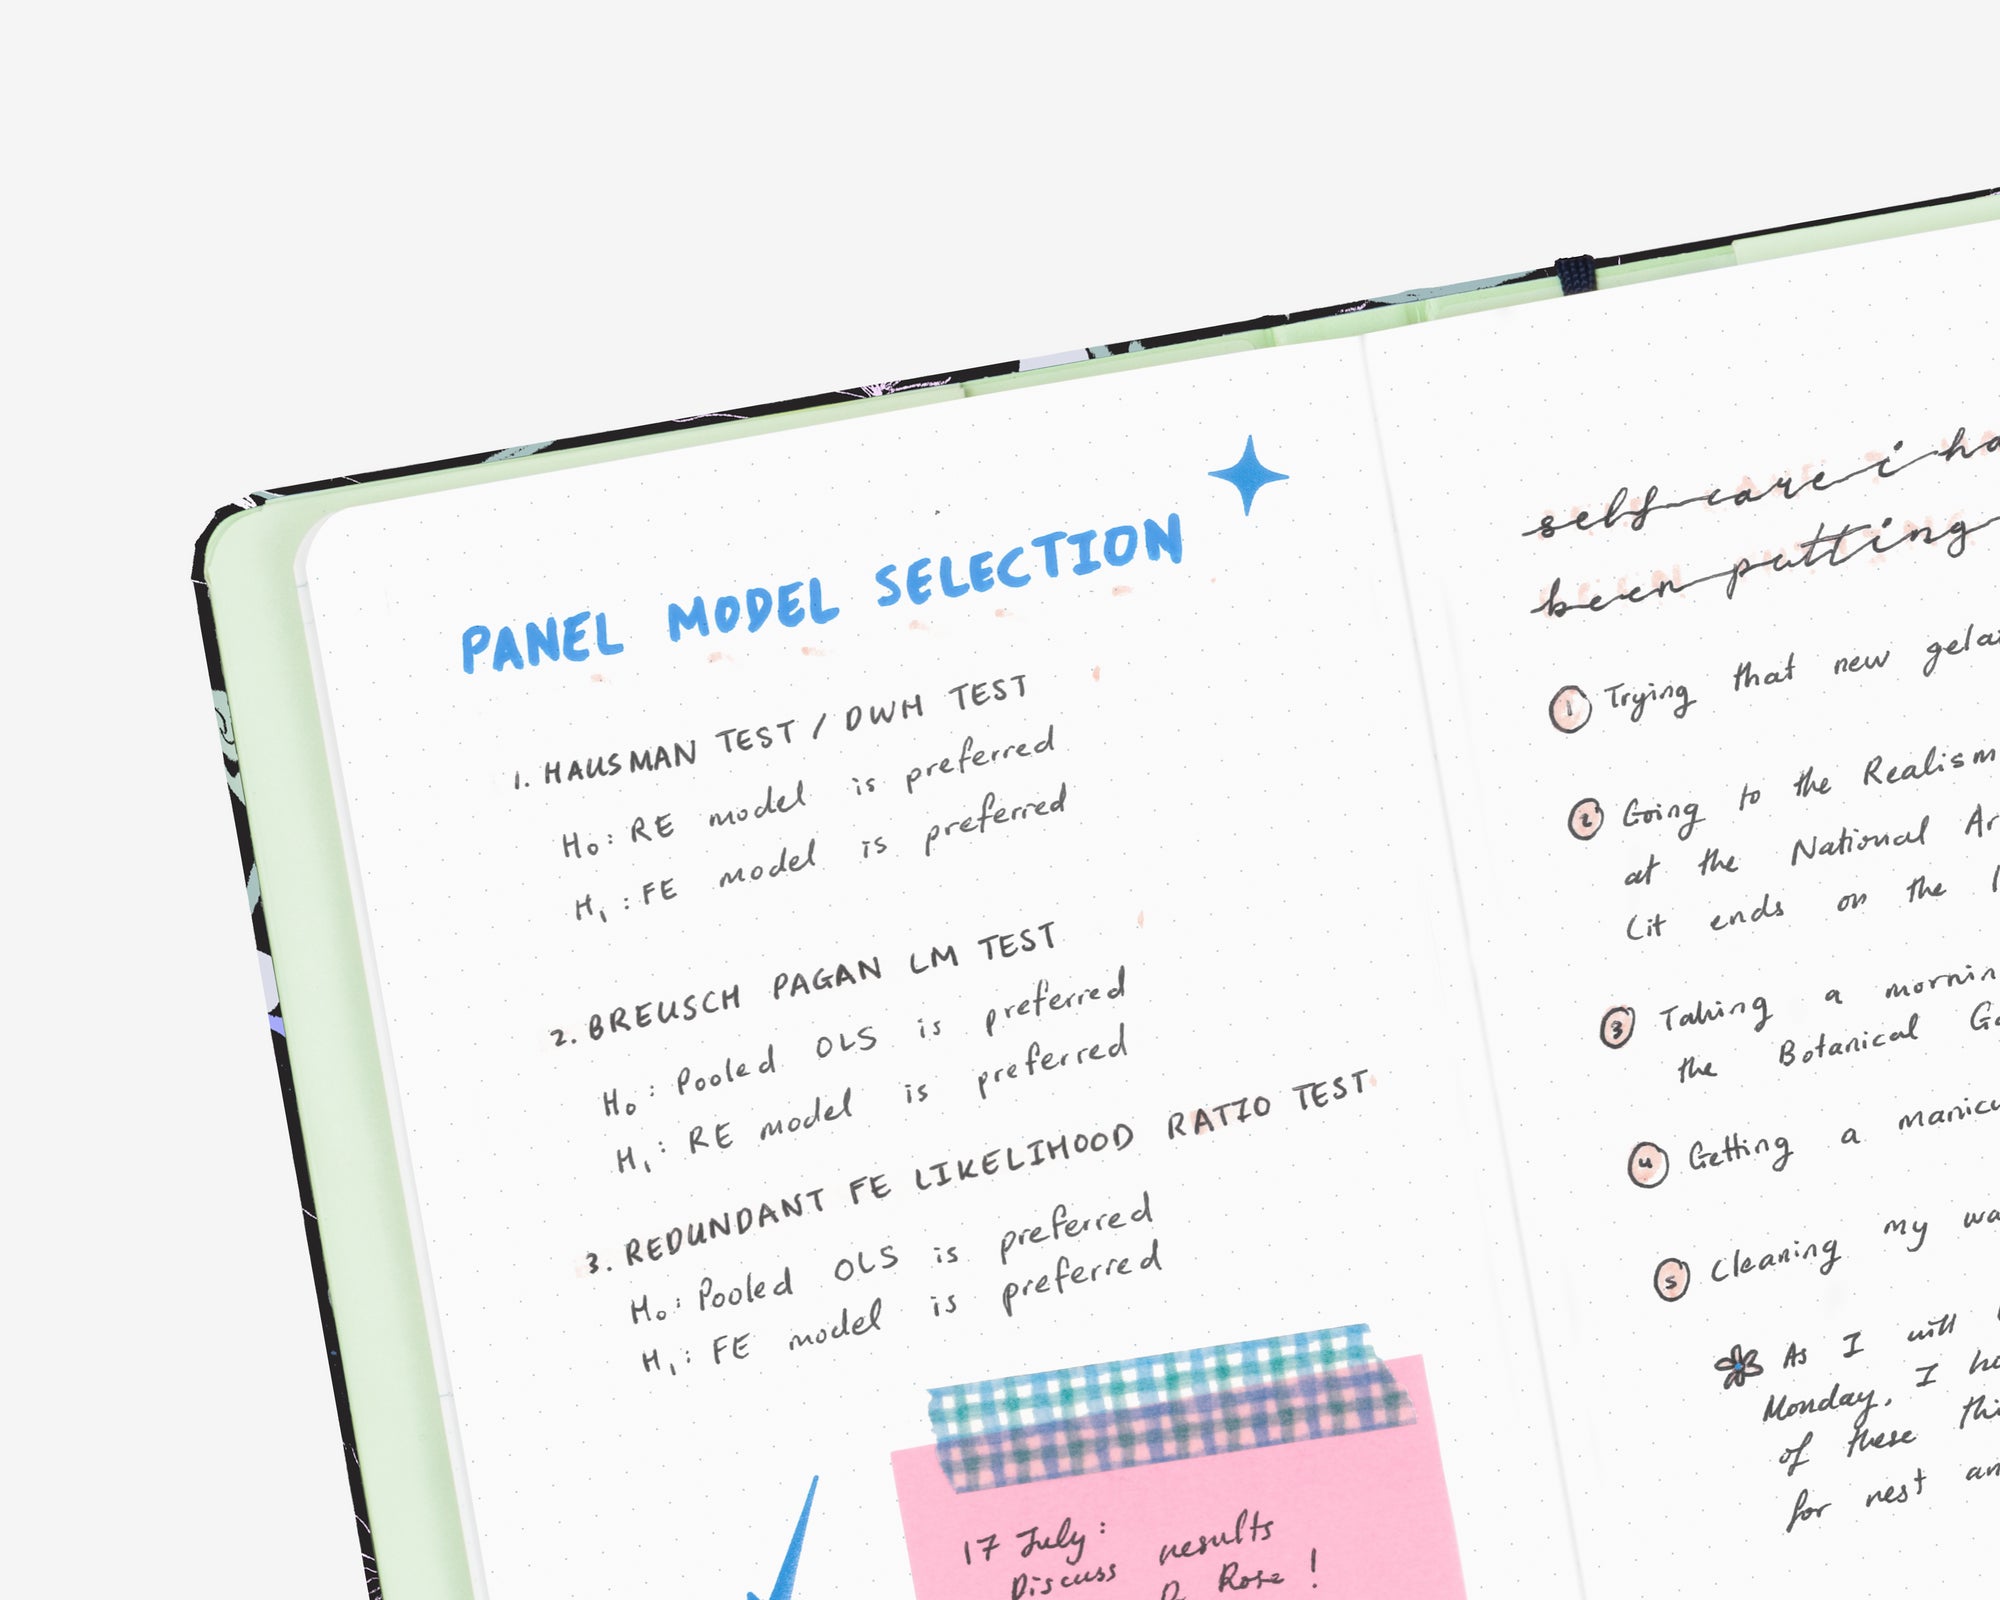 PANEL MODEL SELECTION
1. HAUSMAN TEST / DWH TEST
H₀: RE model is preferred
H₁: FE model is preferred
2. BREUSCH PAGAN LM TEST
H₀: Pooled OLS is preferred
H₁: RE model is preferred
3. REDUNDANT FE LIKELIHOOD RATIO TEST
H₀: Pooled OLS is preferred
H₁: FE model is preferred
17 July:
Discuss results
Rose!
self care i
been putting
1 Trying that new
2 Going to the Realism
at the National
(it ends on the
3 Taking a
the Botanical
4 Getting a
5 Cleaning my
As I will
Monday, I
of these
for rest